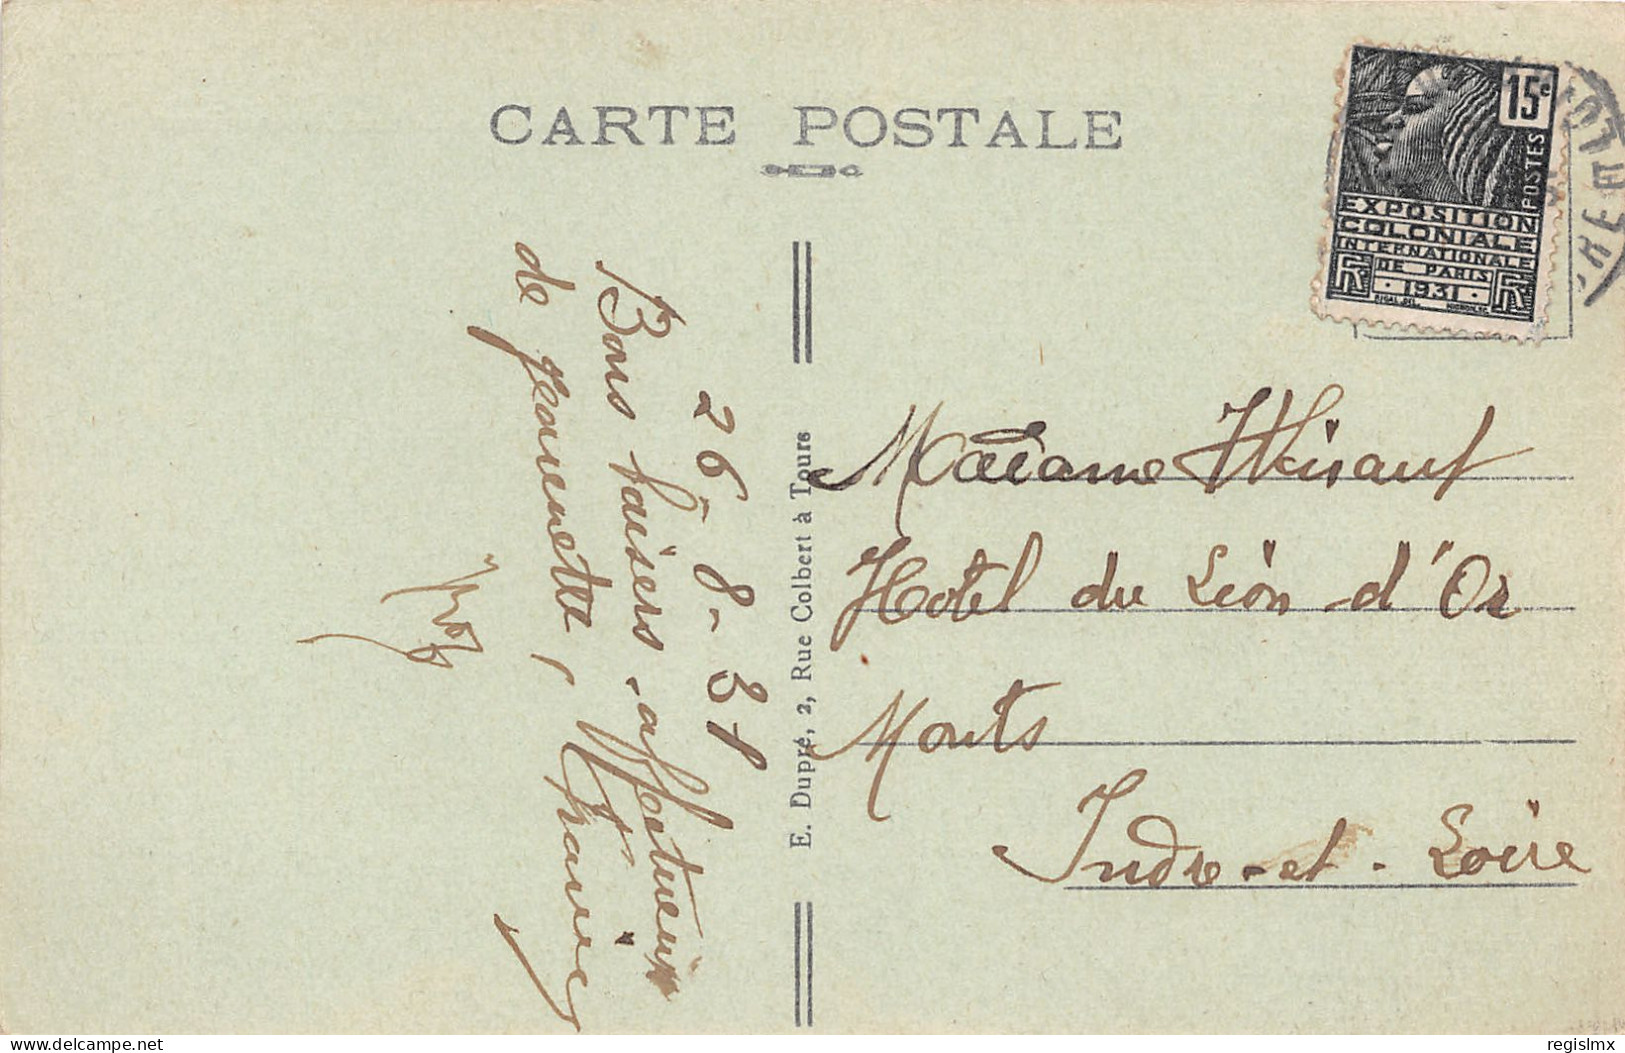 CARTE POSTALE
15c
POSTES
EXPOSITION
COLONIALE
INTERNATIONALE
DE PARIS
1931
RF RF
26-8-31
Bons baisers affectueux
de jeannette,
E. Dupré, 2, Rue Colbert à Tours
Madame
Hotel du Lion d'Or
Monts
Indre-et-Loire
delcampe.net
regislmx